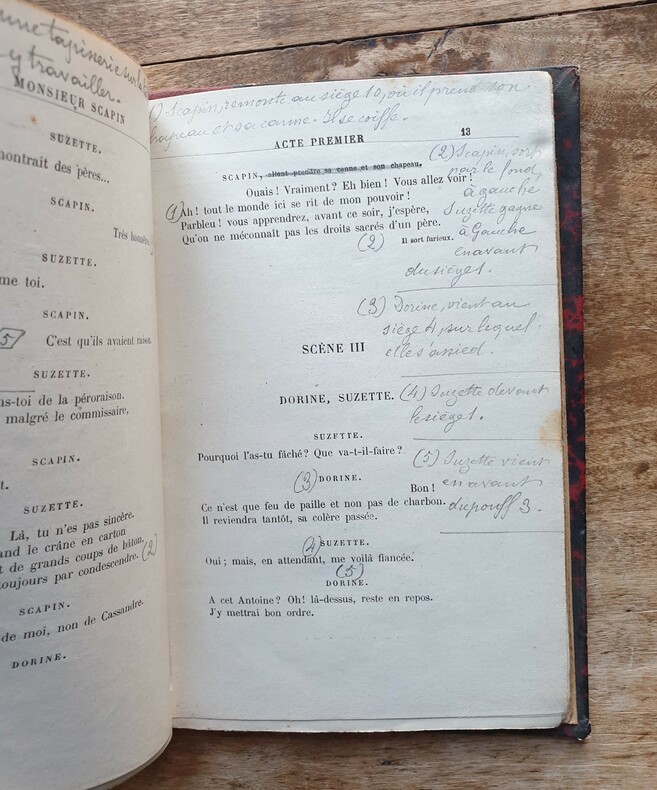 une tapisserie sur la
y travailler.
MONSIEUR SCAPIN
SUZETTE.
montrait des pères...
SCAPIN.
Très honnête
SUZETTE.
me toi.
SCAPIN.
5
C'est qu'ils avaient raison.
SUZETTE.
as-toi de la péroraison.
malgré le commissaire,
SCAPIN.
t.
SUZETTE.
Là, tu n'es pas sincère.
and le crâne en carton
t de grands coups de bâton,
toujours par condescendre. (2)
SCAPIN.
de moi, non de Cassandre.
DORINE.
1) Scapin, remonte au siège 10, où il prend son
chapeau et sa canne. Il se coiffe.
ACTE PREMIER
13
SCAPIN, allant prendre sa canne et son chapeau.
Ouais! Vraiment? Eh bien! Vous allez voir!
(1) Ah! tout le monde ici se rit de mon pouvoir!
Parbleu! vous apprendrez, avant ce soir, j'espère,
Qu'on ne méconnaît pas les droits sacrés d'un père.
(2) Il sort furieux.
(2) Scapin, sort
par le fond,
à gauche
Suzette gagne
à Gauche
en avant
du siège 1.
(3) Dorine, vient au
siège 4, sur lequel
elle s'assied.
SCÈNE III
DORINE, SUZETTE.
(4) Suzette devant
le siège 1.
SUZETTE.
Pourquoi l'as-tu fâché? Que va-t-il-faire?
(5) Suzette vient
en avant
du pouff 3.
(3) DORINE.
Bon!
Ce n'est que feu de paille et non pas de charbon.
Il reviendra tantôt, sa colère passée.
(4) SUZETTE.
Oui; mais, en attendant, me voilà fiancée.
(5)
DORINE.
A cet Antoine? Oh! là-dessus, reste en repos.
J'y mettrai bon ordre.